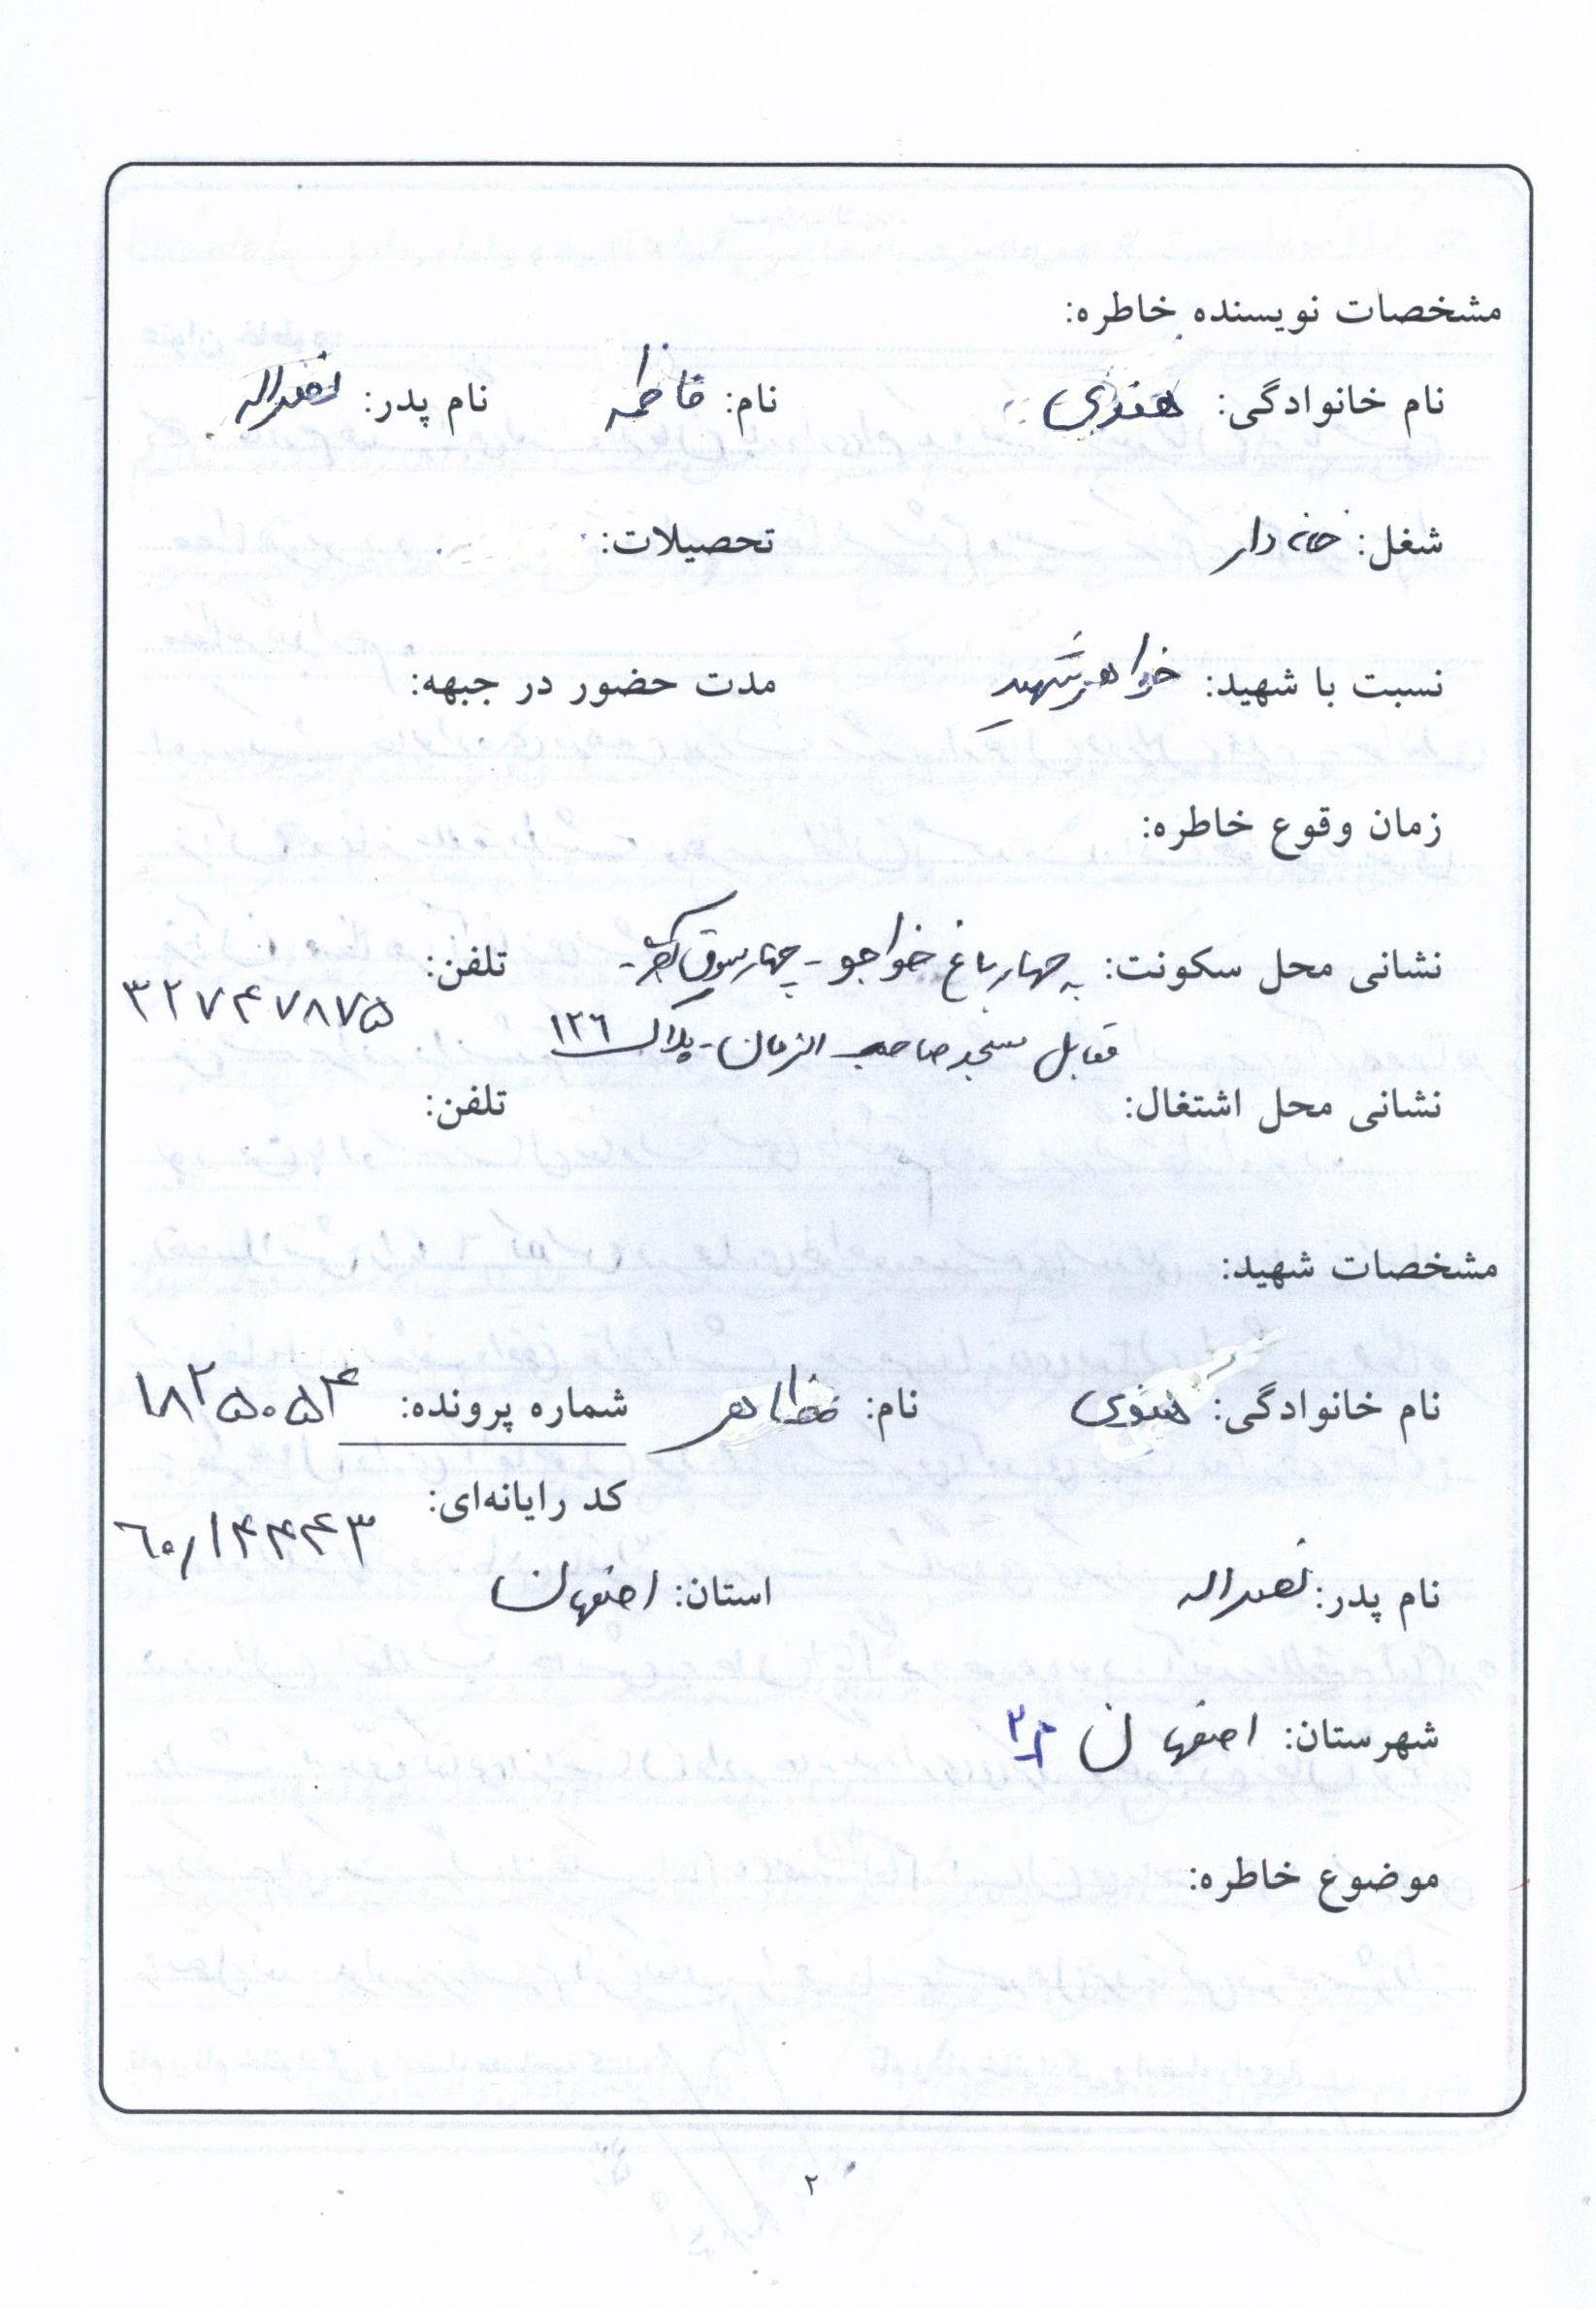 مشخصات نویسنده خاطره:
نام خانوادگی: هنوی نام: فاطمه نام پدر: نصراله
شغل: خانه دار تحصیلات:
نسبت با شهید: خواهر شهید مدت حضور در جبهه:
زمان وقوع خاطره:
نشانی محل سکونت: چهارباغ خواجو - چهارسوق - تلفن:
۳۲۷۴۷۸۷۵
مقابل مسجد صاحب الزمان - پلاک ۱۲۶
نشانی محل اشتغال: تلفن:
مشخصات شهید:
نام خانوادگی: هنوی نام: مظاهر شماره پرونده: ۱۸۲۵۰۵۴
کد رایانه‌ای:
۶۰/۱۴۴۴۳
نام پدر: نصراله استان: اصفهان
شهرستان: اصفهان
موضوع خاطره:
۲